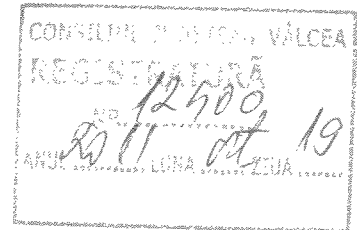 CONSILIUL JUDEŢEAN VÂLCEA
REGISTRATURĂ
NR. 12500
ANUL 2011 LUNA oct ZIUA 19